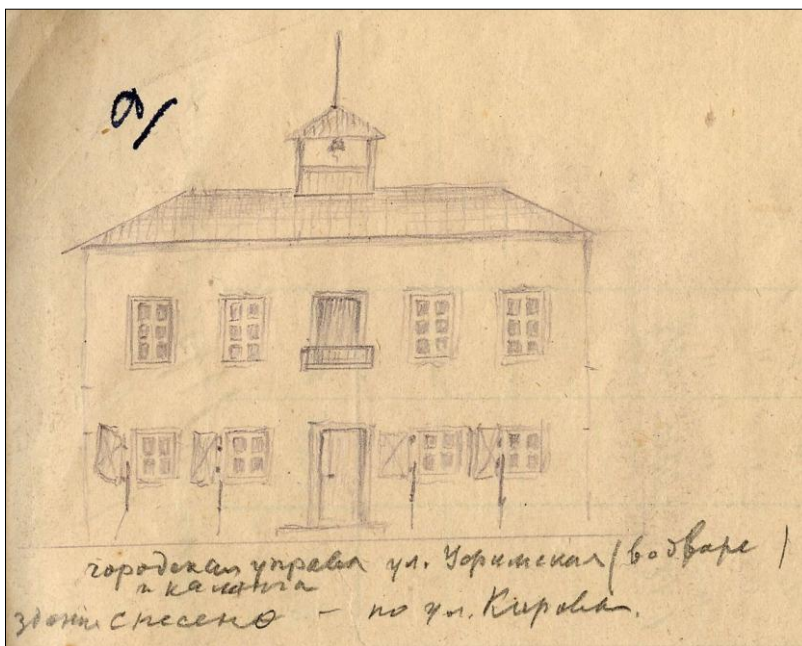 9/
городская управа ул. Уфимская (во дворе)
и каланча
здание снесено – по ул. Кирова.